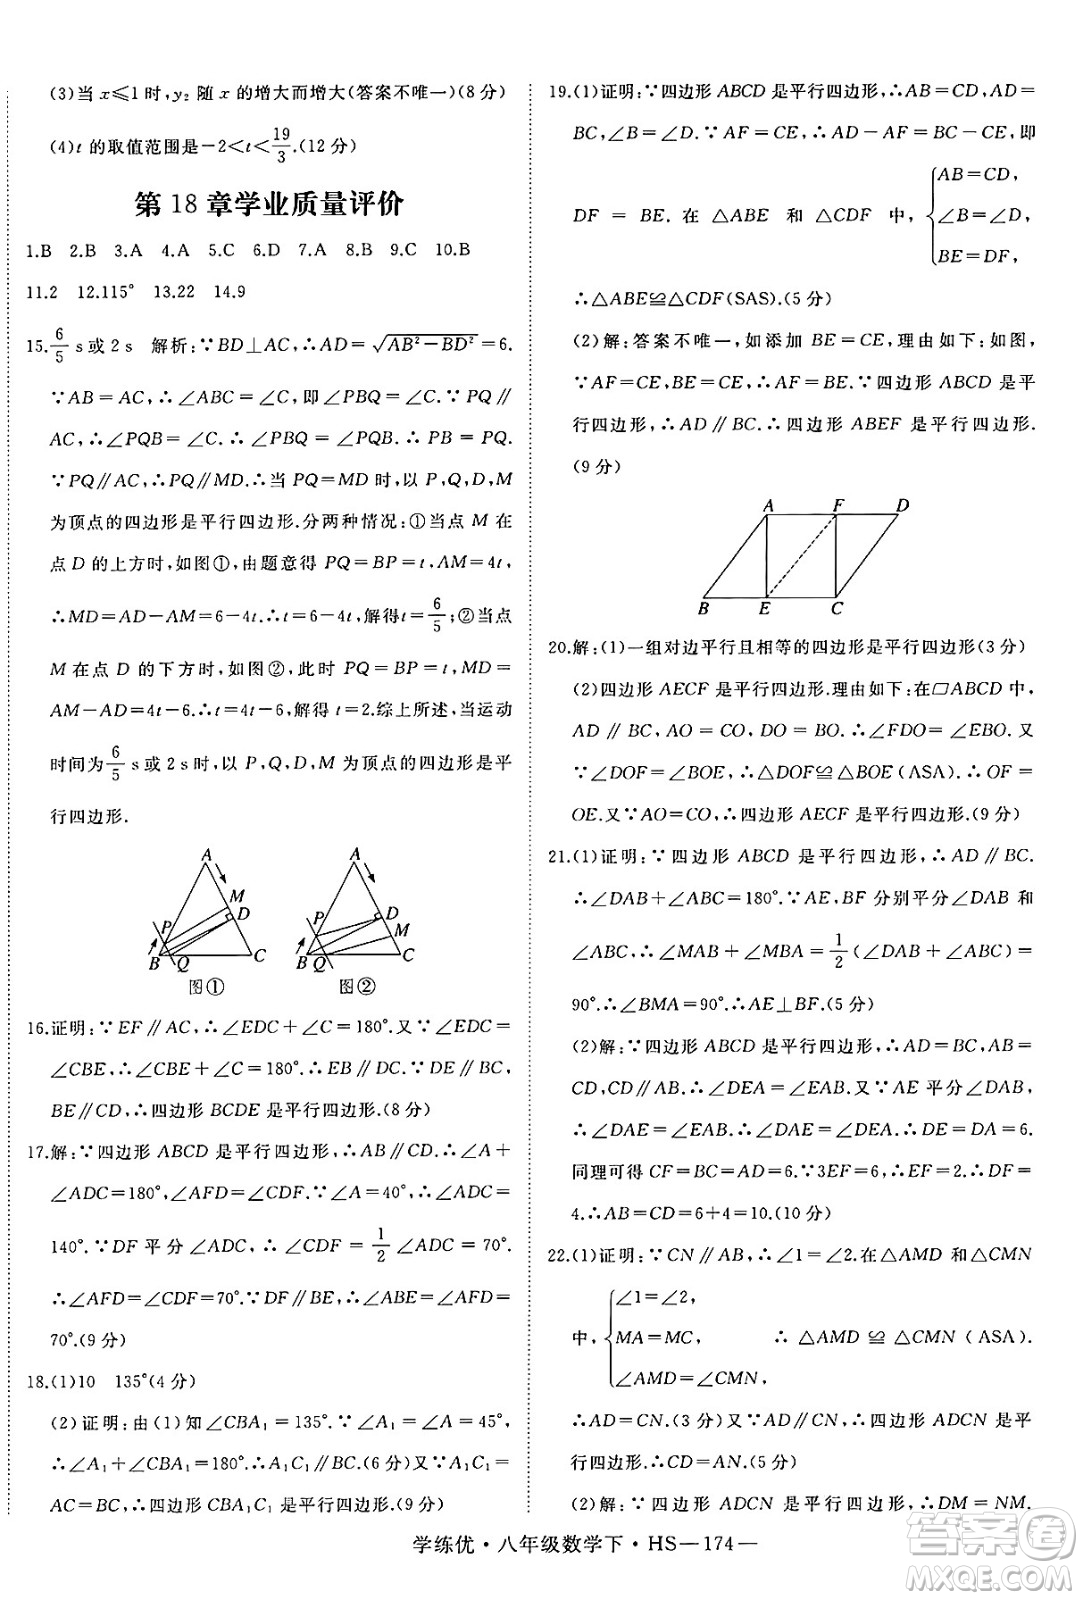 (3)当 x≤1 时,y₂ 随 x 的增大而增大(答案不唯一)(8 分)
(4)t 的取值范围是-2<t<19/3.(12 分)
第 18 章学业质量评价
1.B 2.B 3.A 4.A 5.C 6.D 7.A 8.B 9.C 10.B
11.2 12.115° 13.22 14.9
15.6/5 s或 2 s 解析:∵BD⊥AC,∴AD=√(AB²-BD²)=6.
∵AB=AC,∴∠ABC=∠C,即∠PBQ=∠C.∵PQ∥
AC,∴∠PQB=∠C.∴∠PBQ=∠PQB.∴PB=PQ.
∵PQ∥AC,∴PQ∥MD.∴当 PQ=MD 时,以 P,Q,D,M
为顶点的四边形是平行四边形.分两种情况:①当点 M 在
点 D 的上方时,如图①,由题意得 PQ=BP=t,AM=4t,
∴MD=AD-AM=6-4t.∴t=6-4t,解得t=6/5;②当点
M 在点 D 的下方时,如图②,此时 PQ=BP=t,MD=
AM-AD=4t-6.∴t=4t-6,解得 t=2.综上所述,当运动
时间为6/5 s或 2 s时,以 P,Q,D,M 为顶点的四边形是平
行四边形.
A M D P B Q C 图①
A D P M B Q C 图②
16.证明:∵EF∥AC,∴∠EDC+∠C=180°.又∵∠EDC=
∠CBE,∴∠CBE+∠C=180°.∴EB∥DC.∵DE∥BC,
BE∥CD,∴四边形 BCDE 是平行四边形.(8 分)
17.解:∵四边形 ABCD 是平行四边形,∴AB∥CD.∴∠A+
∠ADC=180°,∠AFD=∠CDF.∵∠A=40°,∴∠ADC=
140°.∵DF 平分∠ADC,∴∠CDF=1/2∠ADC=70°.
∴∠AFD=∠CDF=70°.∵DF∥BE,∴∠ABE=∠AFD=
70°.(9 分)
18.(1)10 135°(4 分)
(2)证明:由(1)知∠CBA₁=135°.∵∠A₁=∠A=45°,
∴∠A₁+∠CBA₁=180°.∴A₁C₁∥BC.(6 分)又∵A₁C₁=
AC=BC,∴四边形 CBA₁C₁ 是平行四边形.(9 分)
19.(1)证明:∵四边形 ABCD 是平行四边形,∴AB=CD,AD=
BC,∠B=∠D.∵AF=CE,∴AD-AF=BC-CE,即
DF=BE.在△ABE 和△CDF 中,{AB=CD,
∠B=∠D,
BE=DF,
∴△ABE≌△CDF(SAS).(5 分)
(2)解:答案不唯一,如添加 BE=CE,理由如下:如图,
∵AF=CE,BE=CE,∴AF=BE.∵四边形 ABCD 是平
行四边形,∴AD∥BC.∴四边形 ABEF 是平行四边形.
(9 分)
A F D
B E C
20.解:(1)一组对边平行且相等的四边形是平行四边形(3 分)
(2)四边形 AECF 是平行四边形.理由如下:在▱ABCD 中,
AD∥BC,AO=CO,DO=BO.∴∠FDO=∠EBO.又
∵∠DOF=∠BOE,∴△DOF≌△BOE(ASA).∴OF=
OE.又∵AO=CO,∴四边形 AECF 是平行四边形.(9 分)
21.(1)证明:∵四边形 ABCD 是平行四边形,∴AD∥BC.
∴∠DAB+∠ABC=180°.∵AE,BF 分别平分∠DAB 和
∠ABC,∴∠MAB+∠MBA=1/2(∠DAB+∠ABC)=
90°.∴∠BMA=90°.∴AE⊥BF.(5 分)
(2)解:∵四边形 ABCD 是平行四边形,∴AD=BC,AB=
CD,CD∥AB.∴∠DEA=∠EAB.又∵AE 平分∠DAB,
∴∠DAE=∠EAB.∴∠DAE=∠DEA.∴DE=DA=6.
同理可得 CF=BC=AD=6.∵3EF=6,∴EF=2.∴DF=
4.∴AB=CD=6+4=10.(10 分)
22.(1)证明:∵CN∥AB,∴∠1=∠2.在△AMD 和△CMN
中,{∠1=∠2,
MA=MC,
∠AMD=∠CMN,
∴△AMD≌△CMN(ASA).
∴AD=CN.(3 分)又∵AD∥CN,∴四边形 ADCN 是平
行四边形.∴CD=AN.(5 分)
(2)解:∵四边形 ADCN 是平行四边形,∴DM=NM.
学练优·八年级数学下·HS—174—
答案圈
MXQE.COM